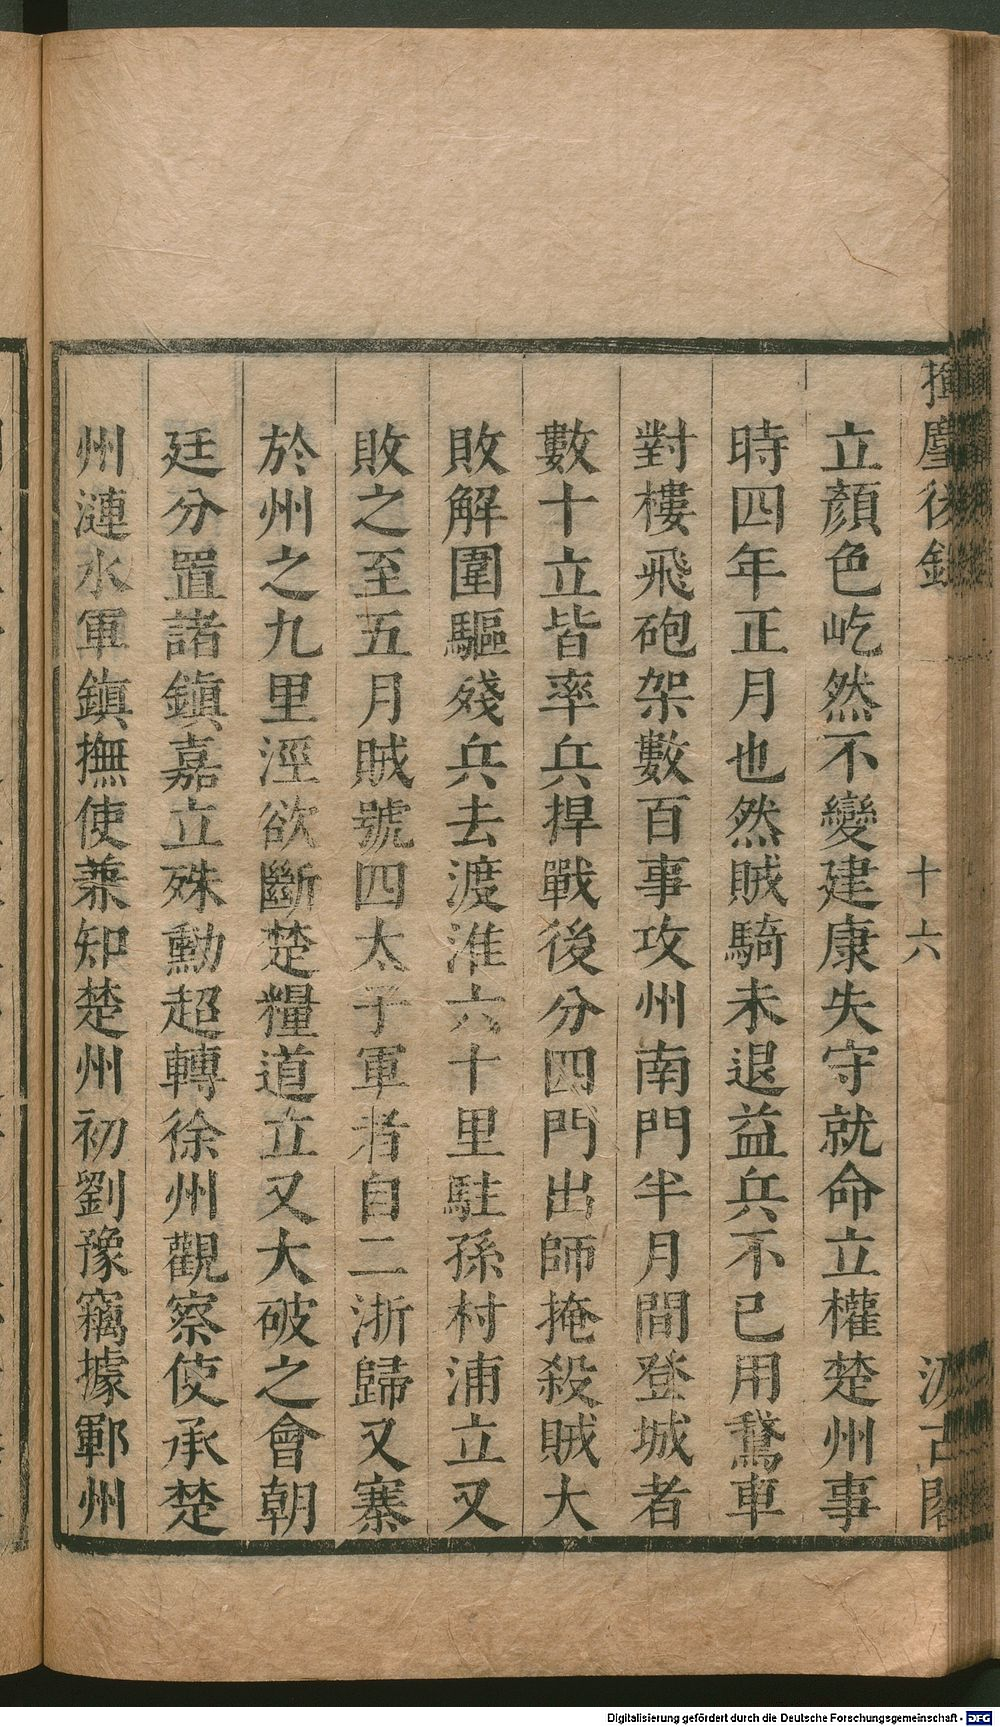 揮麈後錄
十六
汲古閣
立顏色屹然不變建康失守就命立權楚州事
時四年正月也然賊騎未退益兵不已用鵞車
對樓飛砲架數百事攻州南門半月間登城者
數十立皆率兵捍戰後分四門出師掩殺賊大
敗解圍驅殘兵去渡淮六十里駐孫村浦立又
敗之至五月賊號四太子軍者自二浙歸又寨
於州之九里涇欲斷楚糧道立又大破之會朝
廷分置諸鎮嘉立殊勳超轉徐州觀察使承楚
州漣水軍鎮撫使兼知楚州初劉豫竊據鄆州
Digitalisierung gefördert durch die Deutsche Forschungsgemeinschaft - DFG